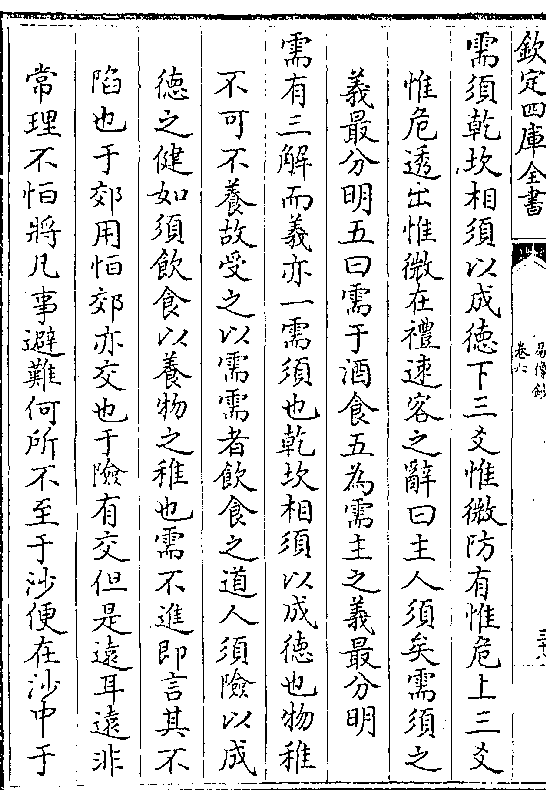 欽定四庫全書
易像鈔
卷八
三十八
需須乾坎相須以成德下三爻惟微防有惟危上三爻
惟危透出惟微在禮速客之辭曰主人須矣需須之
義最分明五曰需于酒食五為需主之義最分明
需有三解而義亦一需須也乾坎相須以成德也物稚
不可不養故受之以需需者飲食之道人須險以成
德之健如須飲食以養物之稚也需不進即言其不
陷也于郊用怕郊亦交也于險有交但是遠耳遠非
常理不怕將凡事避難何所不至于沙便在沙中于